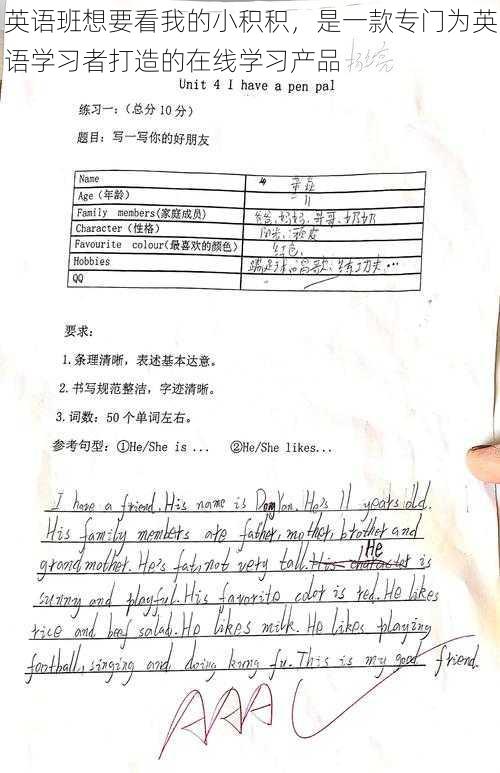 英语班想要看我的小积积，是一款专门为英
语学习者打造的在线学习产品
Unit 4 I have a pen pal
练习一：（总分10分）
题目：写一写你的好朋友
Name
Age（年龄） 11
Family members(家庭成员) 爸爸、妈妈、哥哥、奶奶
Character（性格）
Favourite colour(最喜欢的颜色) 红色、
Hobbies 踢足球、唱歌、练功夫…
QQ
要求：
1.条理清晰，表述基本达意。
2.书写规范整洁，字迹清晰。
3.词数：50个单词左右。
参考句型：①He/She is ... ②He/She likes...
I have a friend. His name is He's 11 years old.
His family members are father, mother, brother and
grandmother. He's fat, not very tall. His character He is
sunny and playful. His favorite color is red. He likes
rice and beef salad. He likes milk. He likes playing
football, singing and doing kung fu. This is my good friend.
AAA